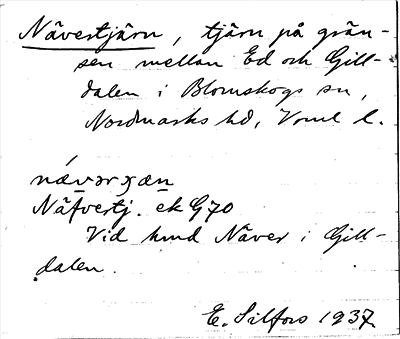 Nävestjärn, tjärn på grän-
sen mellan Ed och Gill-
dalen i Blomskogs sn,
Nordmarks hd, Vrml l.
nævərʒæn
Näfvertj. ek G70
Vid hmd Näver i Gill-
dalen.
E. Silfors 1937